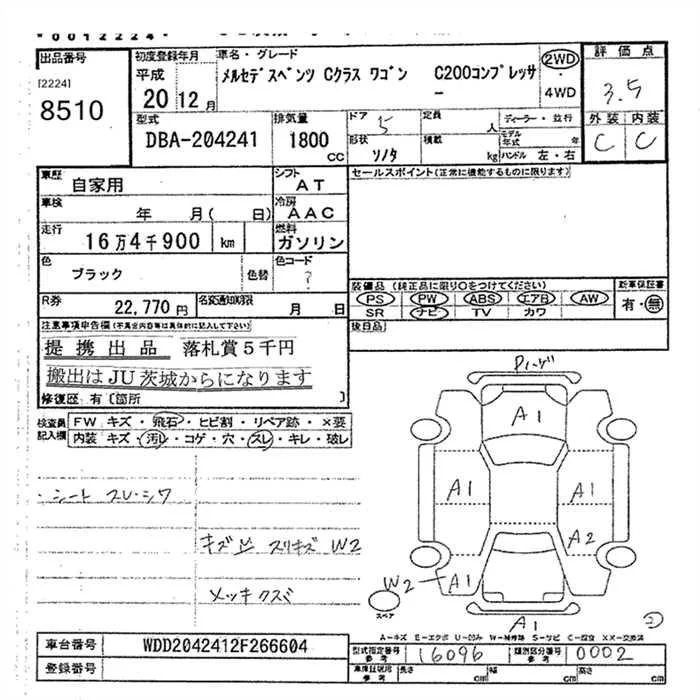 *0012224*
出品番号
[2224]
8510
初度登録年月
平成
20 12 月
車名・グレード
メルセデスベンツ Cクラス ワゴン C200コンプレッサ
ー
2WD
・
4WD
評価点
3.5
外装 内装
C C
型式
DBA-204241
排気量
1800
cc
ドア 5
形状
ソノタ
定員
人
積載
kg
ディーラー・並行
モデル年式 年
ハンドル 左・右
車歴
自家用
シフト
AT
車検
年 月( 日)
冷房
AAC
走行
16万4千900 km
燃料
ガソリン
色
ブラック
色替
色コード
?
R券
22,770円
名変通知期限
月 日
セールスポイント(正常に機能するものに限ります)
装備品 (純正品に限り○をつけてください)
PS PW ABS エアB AW
SR ナビ TV カワ
新車保証書
有・無
後日品
注意事項申告欄(不具合内容等は具体的に記入して下さい)
提携出品 落札賞5千円
搬出はJU茨城からになります
修復歴 有〔箇所 〕
検査員
記入欄
FW キズ・飛石・ヒビ割・リペア跡・×要
内装 キズ・汚レ・コゲ・穴・スレ・キレ・破レ
・シート スレ・シワ
キズ凹 スリキズ W2
メッキクスミ
A1
A1
A1
A2
W2
A1
A1
スペア
A-キズ E-エクボ U-凹み W-補修跡 S-サビ C-腐食 XX-交換済
車台番号
WDD2042412F266604
登録番号
型式指定番号
参考
16096
類別区分番号
参考
0002
車検証現寸
参考
長さ cm
幅 cm
高さ cm